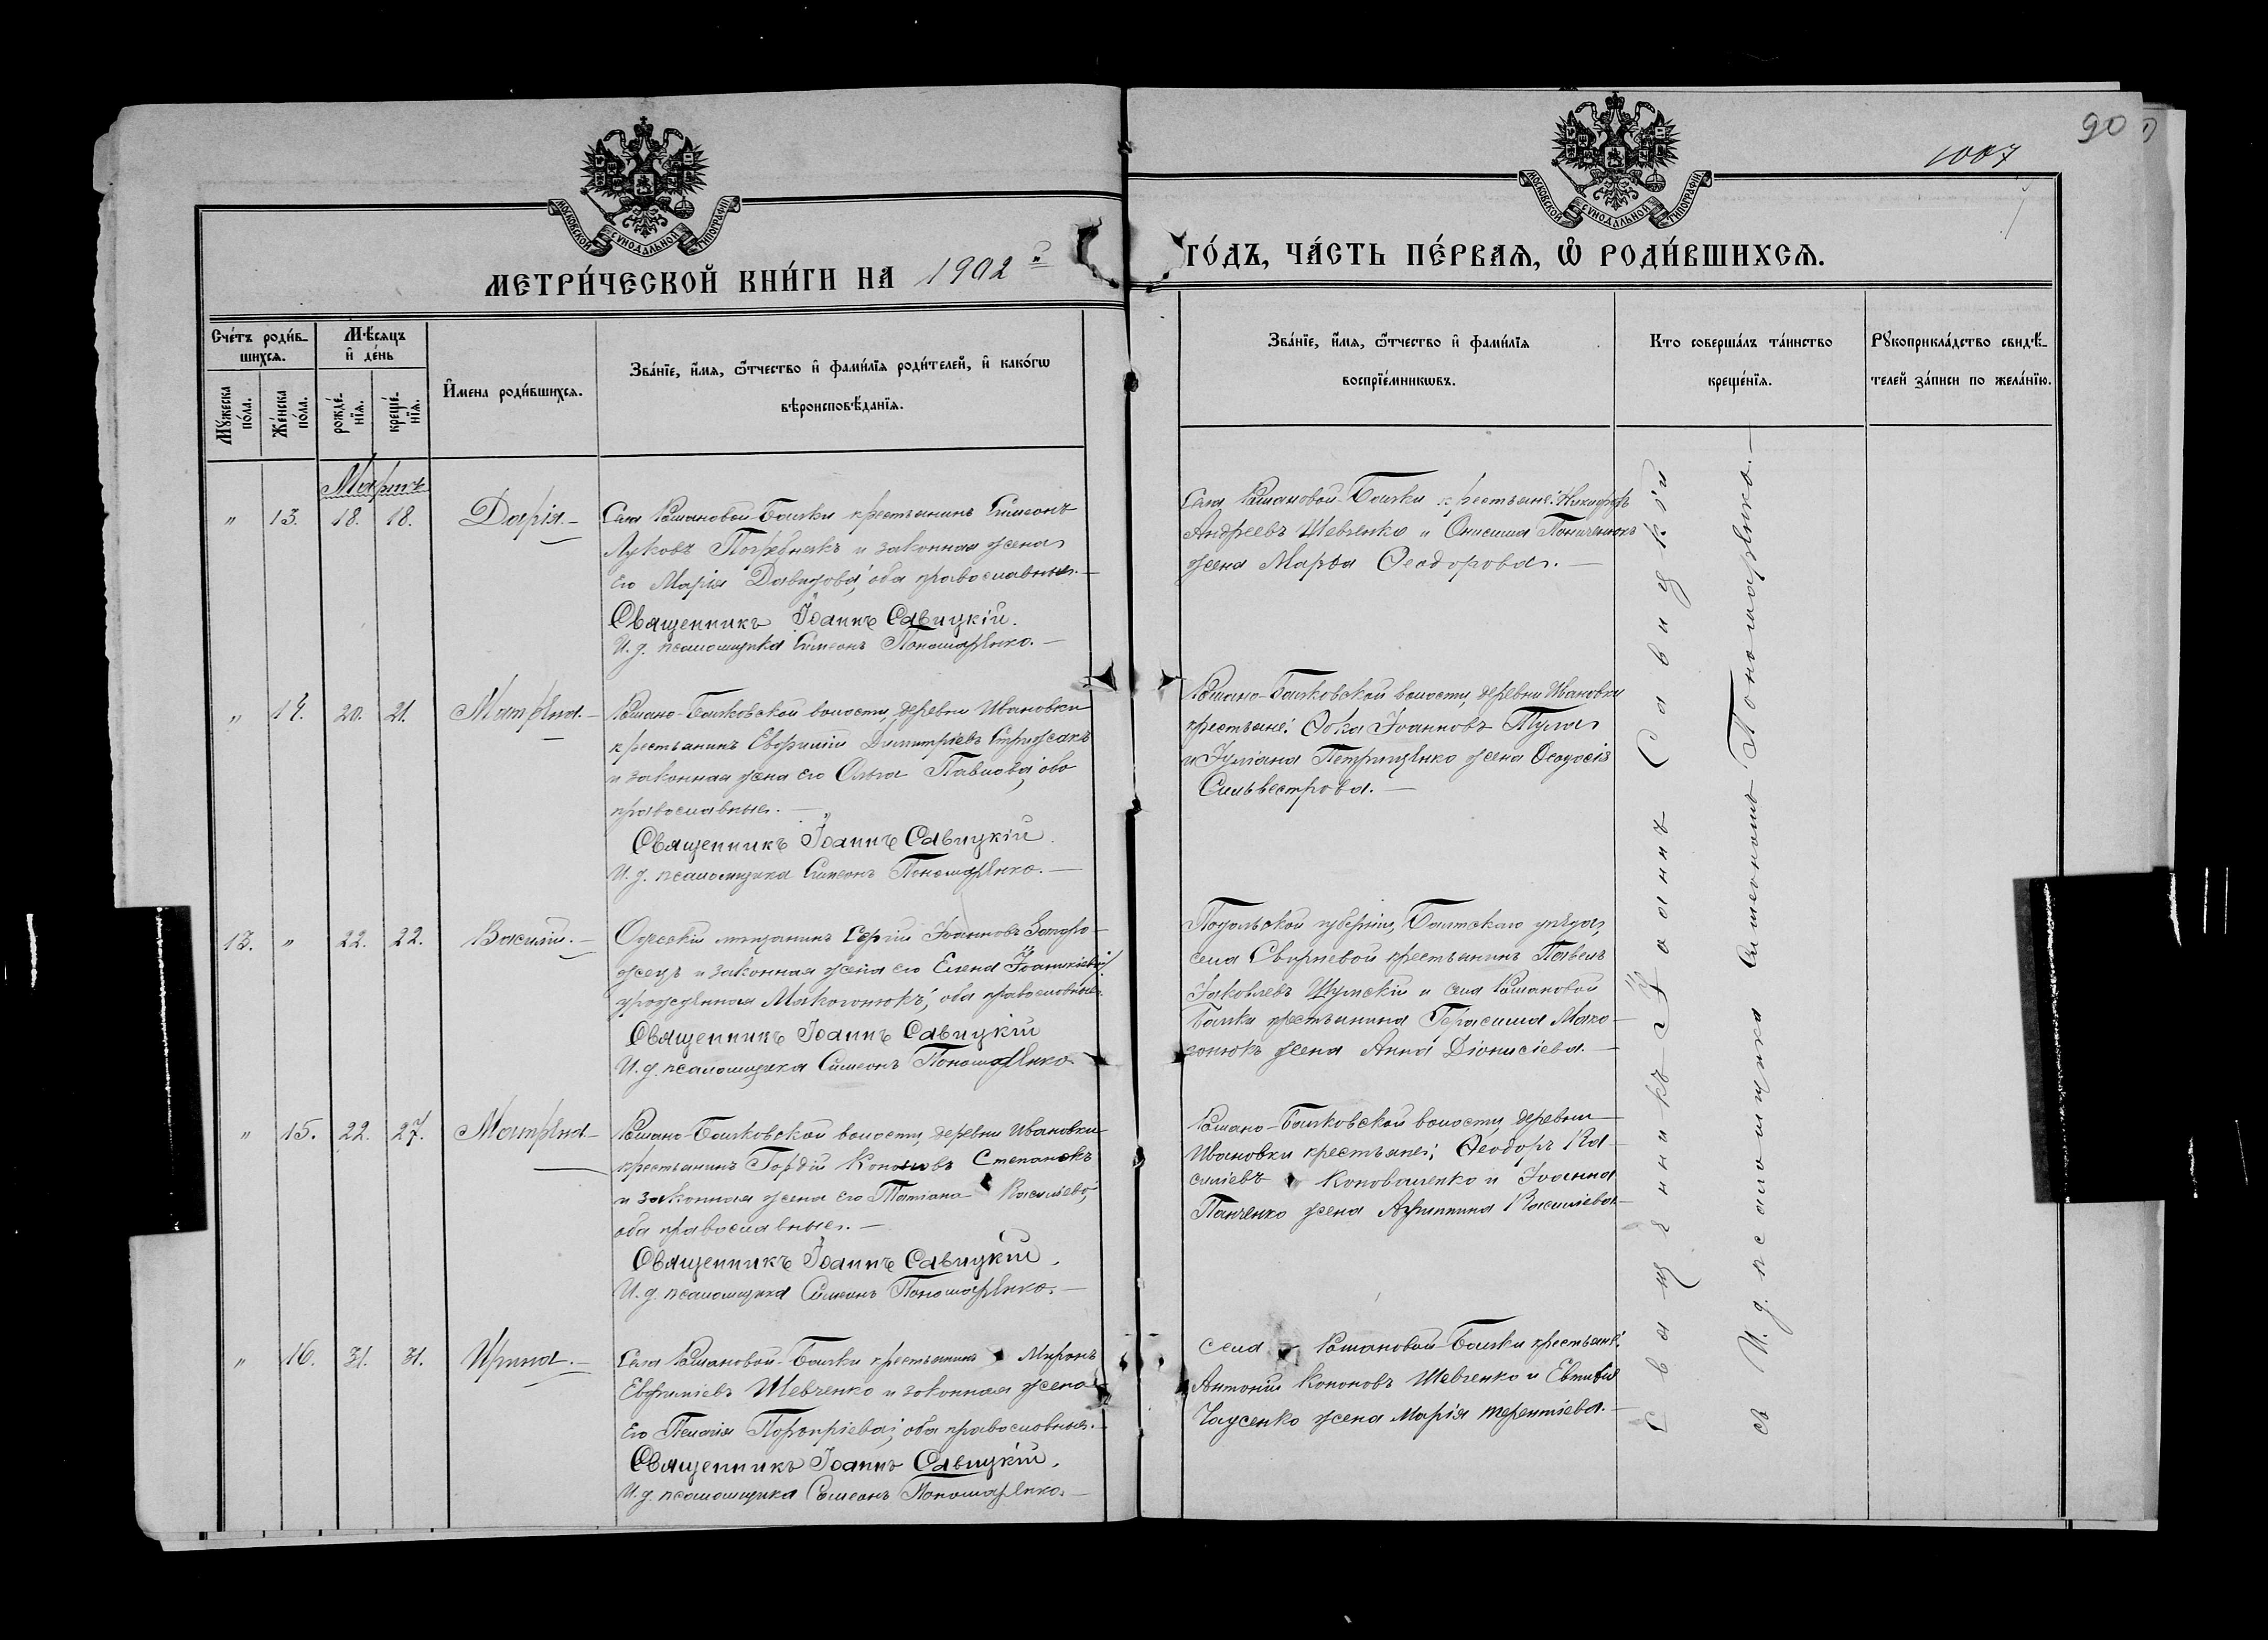 90
1007
МОСКОВСКОЙ СѴНОДАЛЬНОЙ ТИПОГРАФІИ
МОСКОВСКОЙ СѴНОДАЛЬНОЙ ТИПОГРАФІИ
МЕТРИ́ЧЕСКОЙ КНИ́ГИ НА 1902 й
ГО́ДЪ, ЧА́СТЬ ПЕ́РВАѦ, Ѽ РОДИ́ВШИХСѦ.
Сче́тъ роди́в-
шихсѧ.
Мѣ́сѧцъ
и҆ де́нь
Мꙋ́жеска
по́ла.
Же́нска
по́ла.
рожде́-
нїѧ.
креще́-
нїѧ.
И҆мена роди́вшихсѧ.
Зва́нїе, и҆́мѧ, ѻ҆́тчество и҆ фами́лїѧ роди́телей, и҆ како́гѡ
вѣроисповѣ́данїѧ.
Зва́нїе, и҆́мѧ, ѻ҆́тчество и҆ фами́лїѧ
воспрїе́мникѡвъ.
Кто соверша́лъ та́инство
креще́нїѧ.
Рꙋкоприкла́дство свидѣ́-
телей за́писи по жела́нїю.
Мартъ
" 13. 18. 18. Дарія.—
Села Романовой-Балки крестьянинъ Симеонъ
Луковъ Погребнякъ и законная жена
его Марія Давидова, оба православные.—
Священникъ Іоаннъ Савицкій.
И. д. псаломщика Симеонъ Пономаренко.—
Села Романовой-Балки крестьяне: Никифоръ
Андреевъ Шевченко и Онисима
жена Марѳа Ѳеодорова.—
" 14. 20. 21. Матрена.—
Романо-Балковской волости, деревни Ивановки
крестьянинъ Евфимій Димитріевъ Стрижакъ
и законная жена его Ольга Павлова, оба
православные.—
Священникъ Іоаннъ Савицкій.
И. д. псаломщика Симеонъ Пономаренко.—
Романо-Балковской волости, деревни Ивановки
крестьяне: Ѳока Іоанновъ Тула
и Іуліана Петриценко жена Ѳеодосія
Сильвестрова.—
13. " 22. 22. Василій.—
Одесскій мѣщанинъ Сергій Іоанновъ Запоро-
жецъ и законная жена его Елена Іоанникіева,
урожденная Макогонюкъ, оба православные.
Священникъ Іоаннъ Савицкій
И. д. псаломщика Симеонъ Пономаренко.
Подольской губерніи, Балтскаго уѣзда,
села Свирневой крестьянинъ Павелъ
Іаковлевъ Шумскій и села Романовой
Балки крестьянина Герасима Мако-
гонюкъ жена Анна Діонисіева.—
" 15. 22. 27. Матрена—
Романо-Балковской волости, деревни Ивановки
крестьянинъ Гордій Кононовъ Степанокъ
и законная жена его Татіана Василіева,
оба православные.—
Священникъ Іоаннъ Савицкій.
И. д. псаломщика Симеонъ Пономаренко.—
Романо-Балковской волости, деревни
Ивановки крестьяне: Ѳеодоръ Ва-
силіевъ Коноваленко и Іоанна
Панченко жена Агриппина Василіева.—
" 16. 31. 31. Ирина.—
Села Романовой-Балки крестьянинъ Миронъ
Евфиміевъ Шевченко и законная жена
его Пелагія Порфиріева, оба православные.—
Священникъ Іоаннъ Савицкій.
И. д. псаломщика Симеонъ Пономаренко.—
села Романовой-Балки крестьяне:
Антоній Кононовъ Шевченко и Евтихія
Чаусенко жена Марія Терентіева.—
Священникъ Іоаннъ Савицкій
съ И. д. псаломщика Симеономъ Пономаренко.—